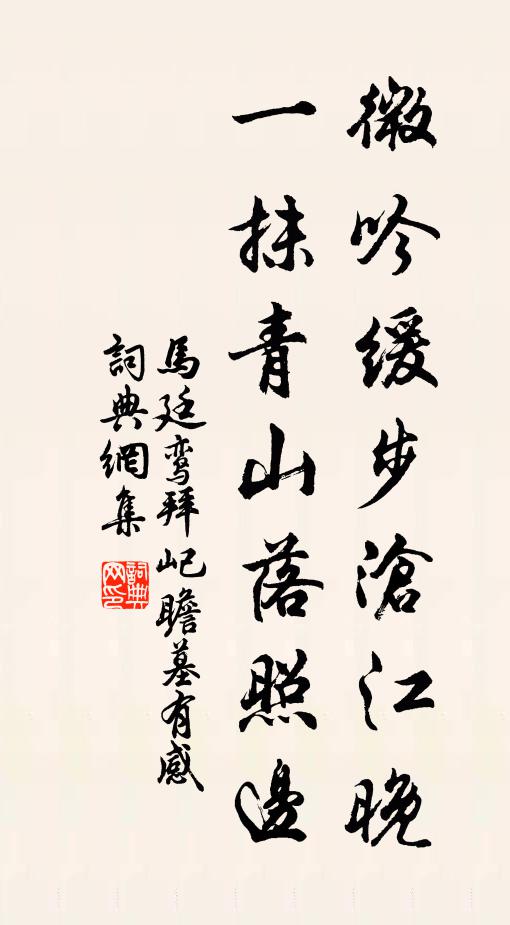 微吟緩步滄江晚
一抹青山落照邊
馬廷鸾拜屺瞻墓有感
詞典網集
詞典网印